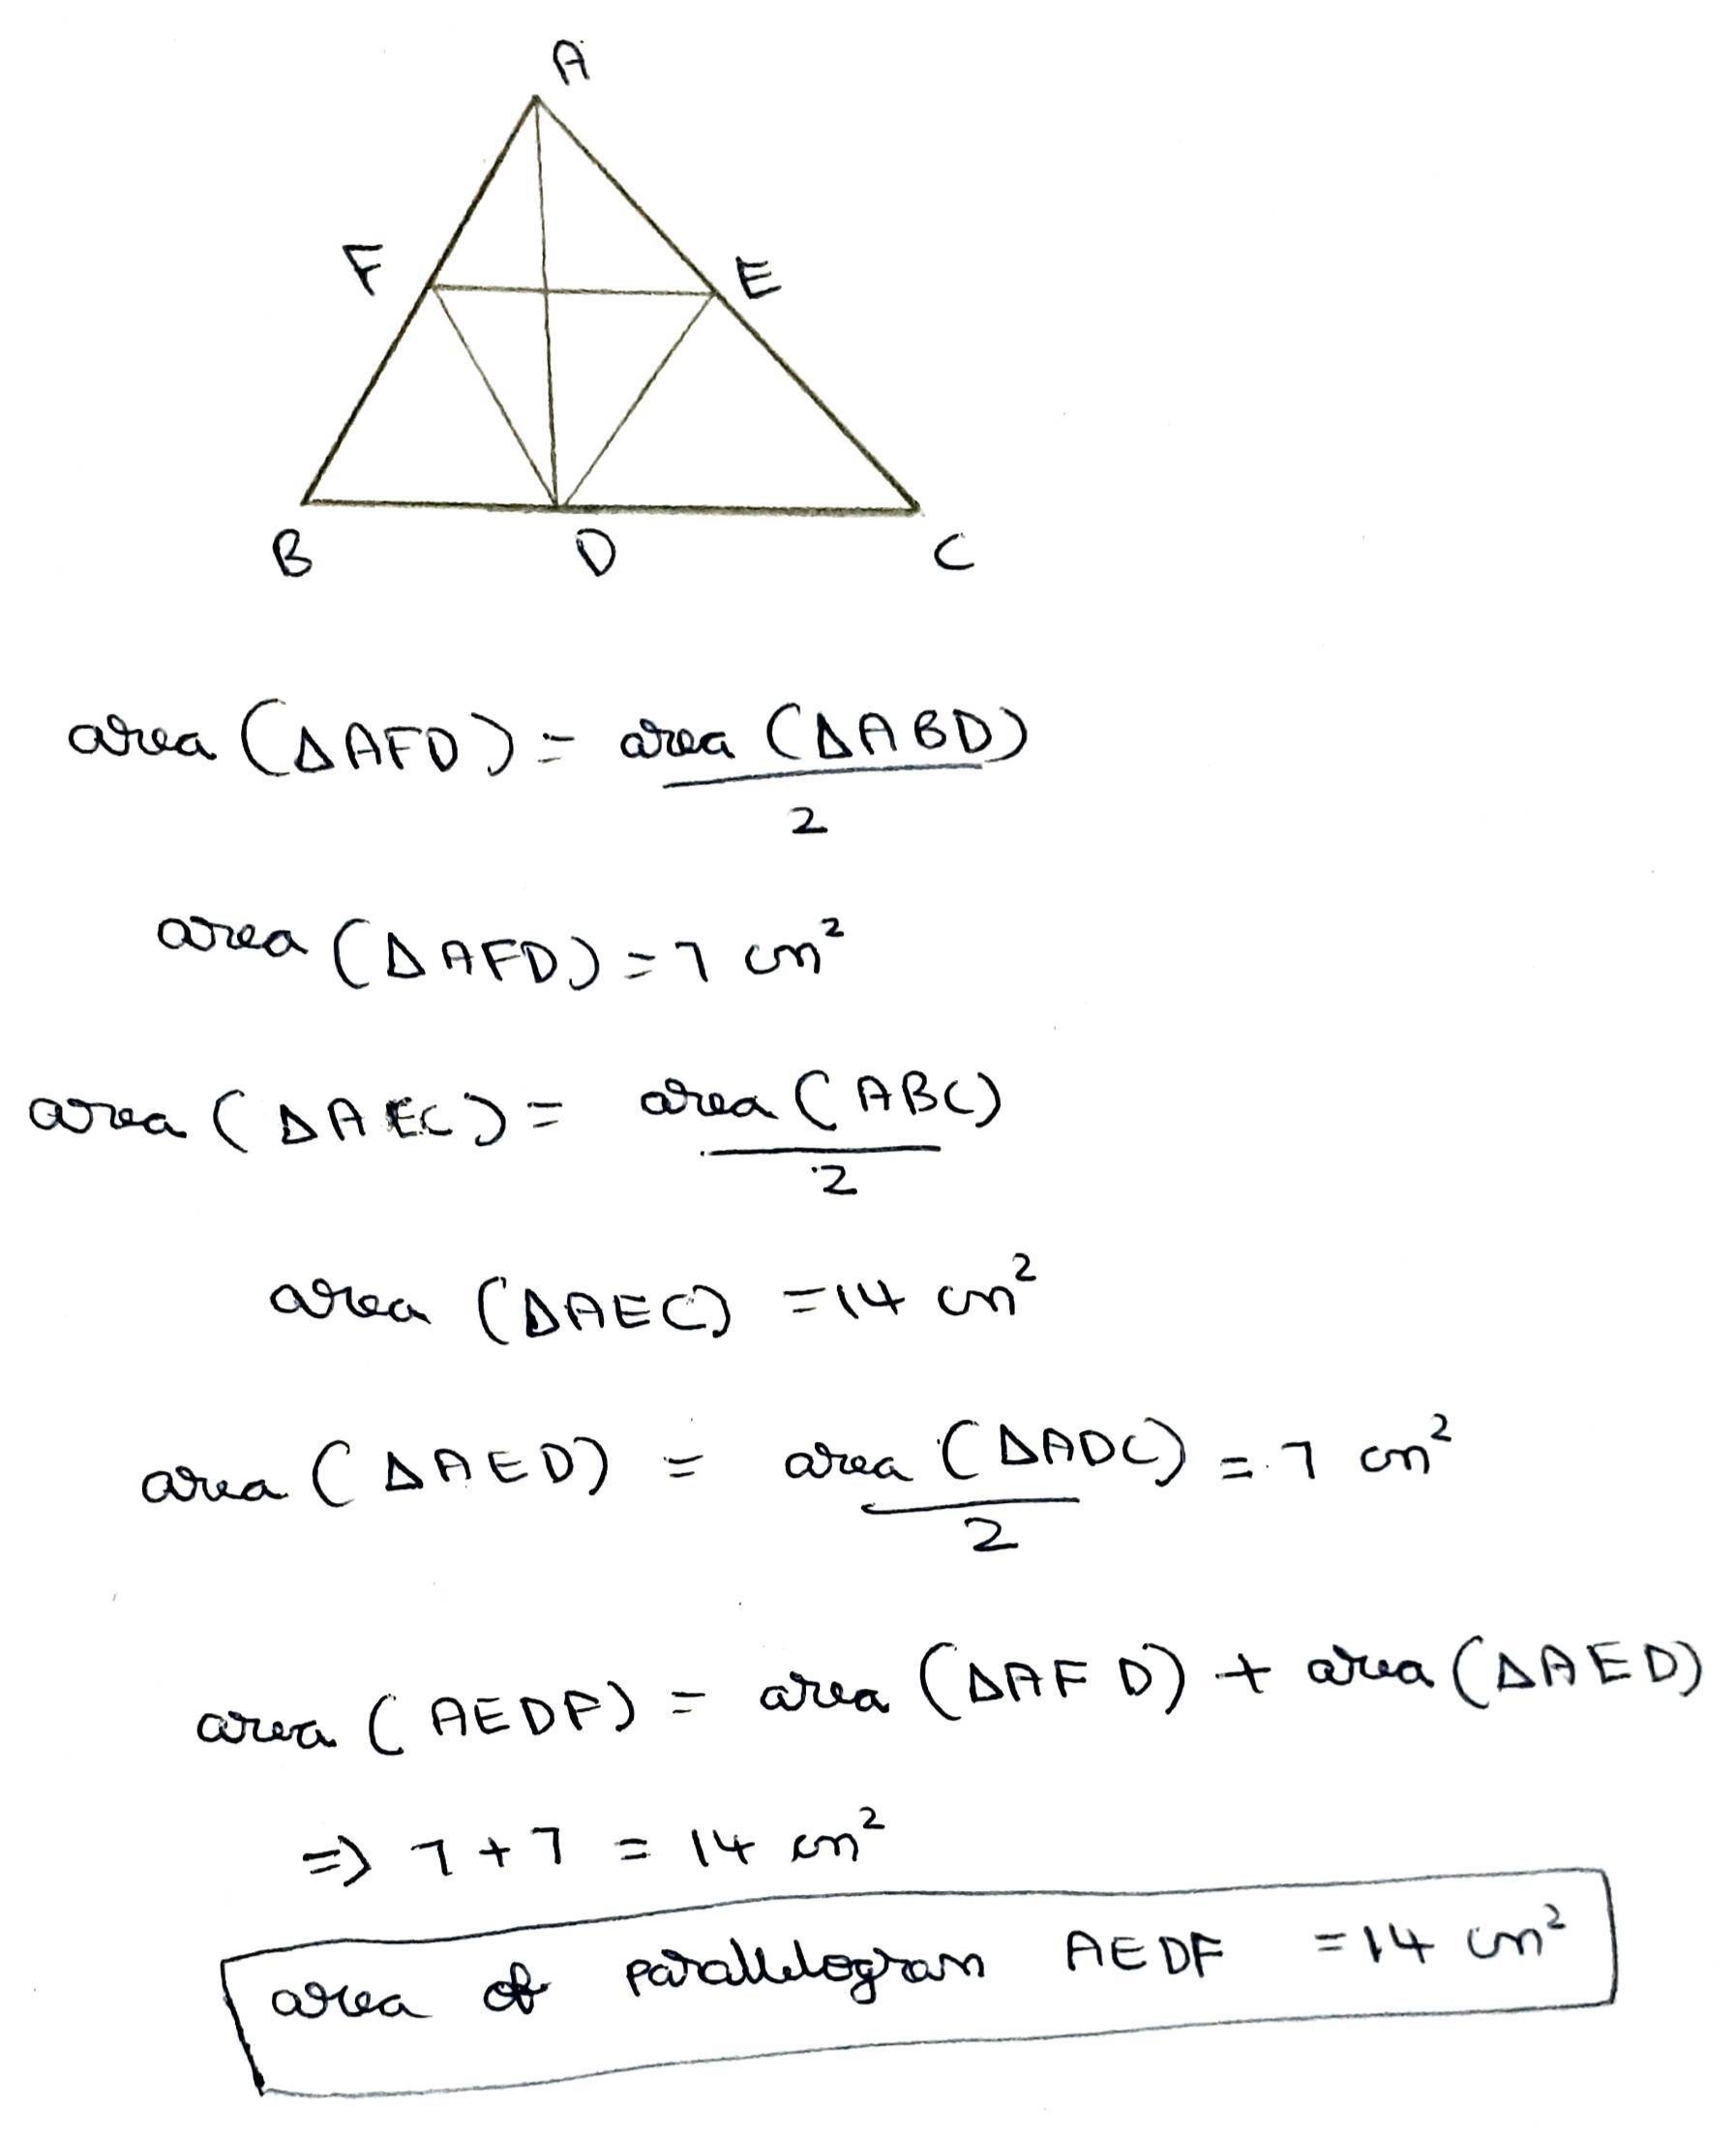 A
F
E
B
D
C
area (ΔAFD) = area (ΔABD)
2
area (ΔAFD) = 7 cm²
area (ΔAEC) = area (ABC)
2
area (ΔAEC) = 14 cm²
area (ΔAED) = area (ΔADC) = 7 cm²
2
area (AEDF) = area (ΔAFD) + area (ΔAED)
⇒ 7 + 7 = 14 cm²
area of parallelogram AEDF = 14 cm²